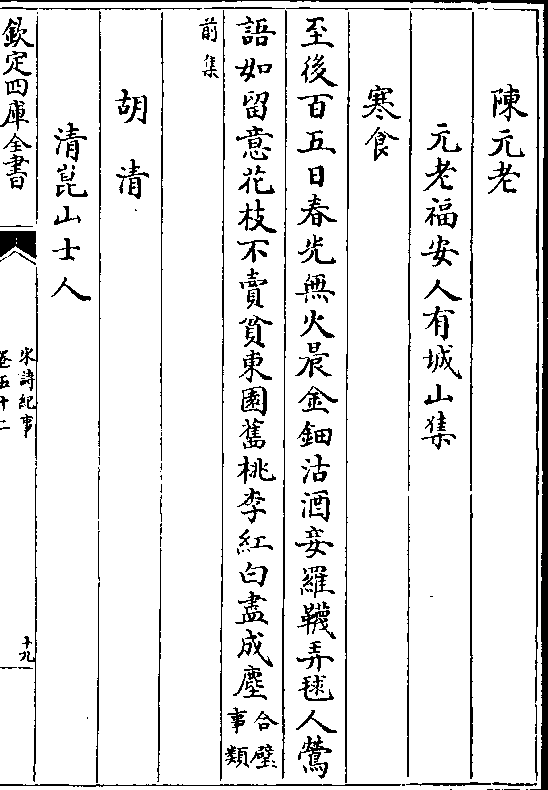 陳元老
元老福安人有城山集
寒食
至後百五日春光無火晨金鈿沽酒妾羅韈弄毬人鶯
語如留意花枝不賣貧東園舊桃李紅白盡成塵合璧
事類
前集
胡清
清崑山士人
欽定四庫全書
宋詩紀事
卷五十二
十九